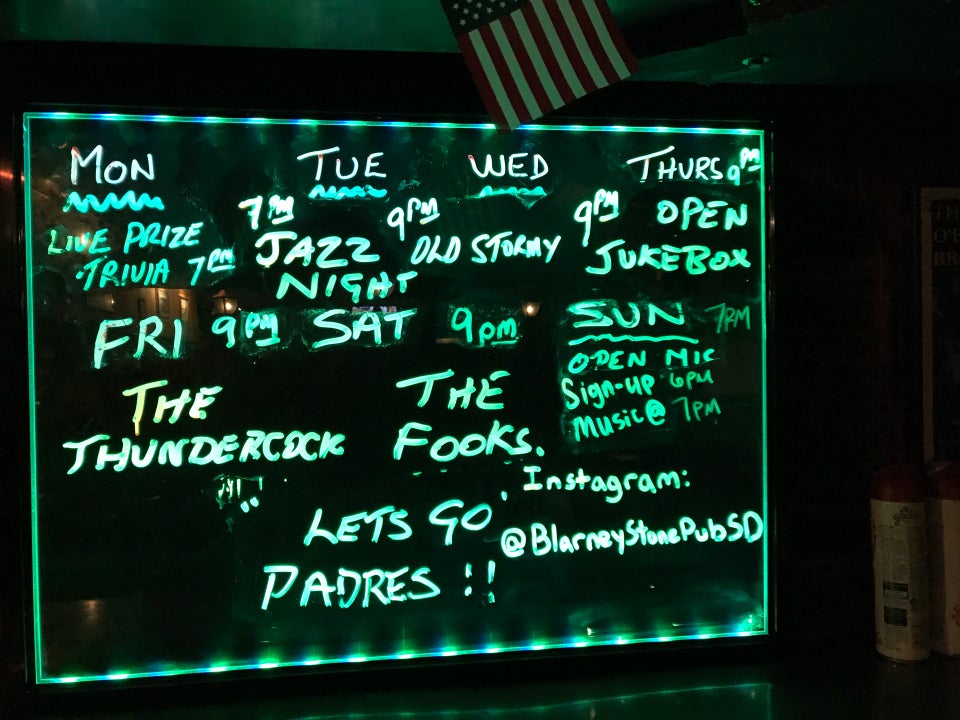 MON
LIVE PRIZE
TRIVIA 7PM
TUE
7PM
JAZZ
NIGHT
WED
9PM
OLD STORMY
THURS 9PM
9PM OPEN
JUKEBOX
FRI 9PM
THE
THUNDERCOCK
SAT 9pm
THE
FOOKS.
SUN 7PM
OPEN MIC
Sign-up 6PM
Music@ 7PM
LETS GO
PADRES !!
Instagram:
@BlarneyStonePubSD